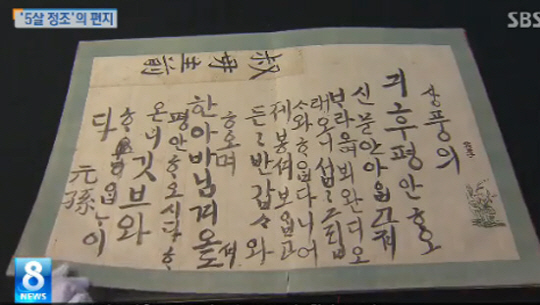 '5살 정조'의 편지
SBS
상풍의
긔후평안ᄒᆞ오
신문안아ᄋᆞᆸ고져
ᄇᆞ라오며뵈완디오
래오니섭〻그립
ᄉᆞ와ᄒᆞᄋᆞᆸ다니어
제봉셔보ᄋᆞᆸ고
든〻반갑ᄉᆞ와
ᄒᆞ오며
한아바님겨오셔도
평안ᄒᆞ오시다ᄒᆞ
온니깃브와
ᄒᆞᄋᆞᆸᄂᆞ이
다
元孫
叔母主前
8
NEWS